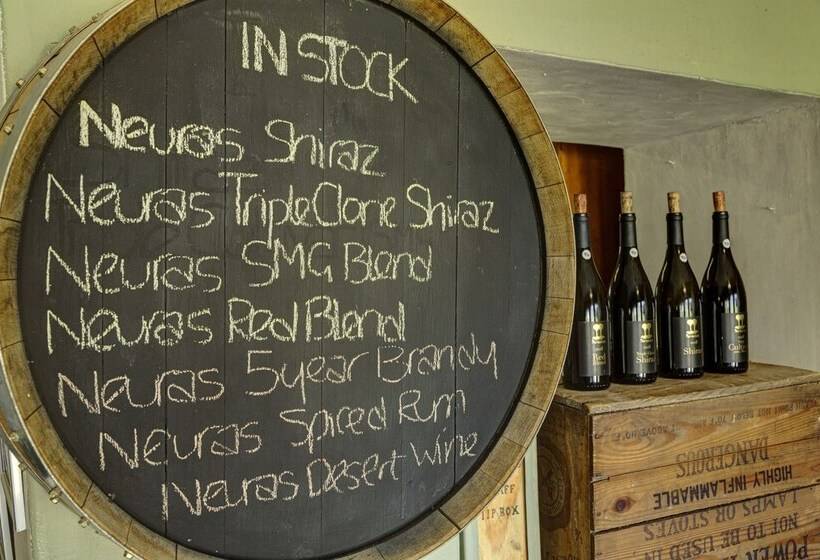 IN STOCK
Neuras Shiraz
Neuras Triple Clone Shiraz
Neuras SMG Blend
Neuras Red Blend
Neuras 5 year Brandy
Neuras Spiced Rum
Neuras Desert Wine
Red
Shiraz
Shiraz
DANGEROUS
HIGHLY INFLAMMABLE
LAMPS OR STOVES
NOT TO BE USED
POWER
IIP BOX